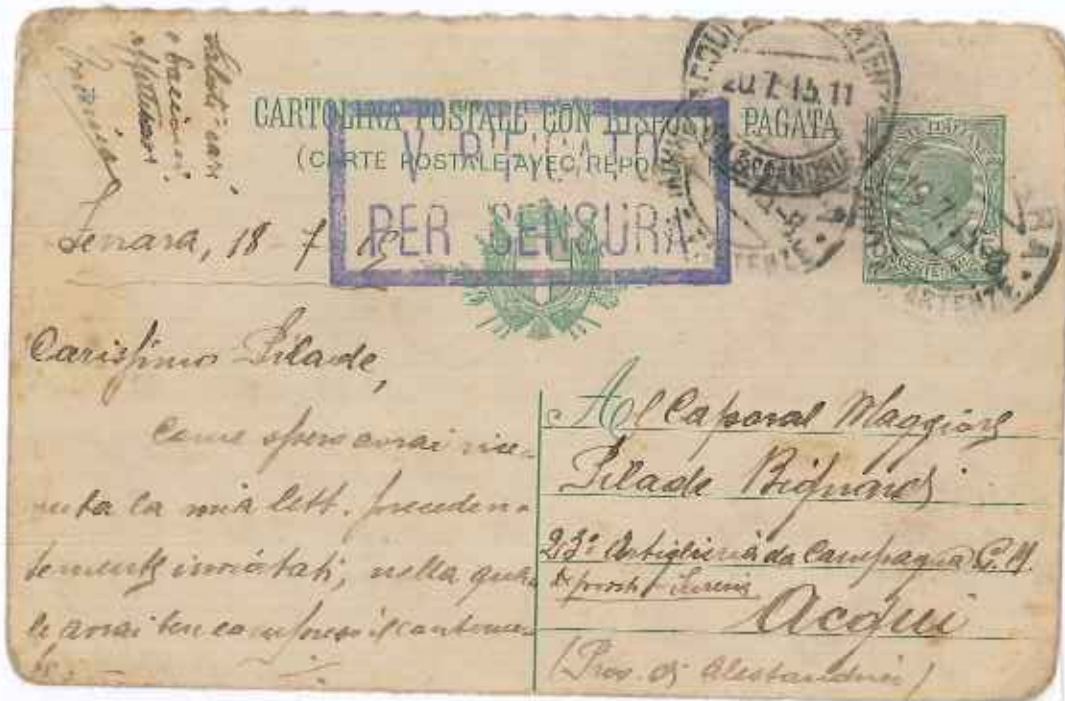 Saluti cari
e bacioni
CARTOLINA POSTALE CON RISPOSTA PAGATA
(CARTE POSTALE AVEC RÉPO
VERIFICATO
PER CENSURA
20.7.15.11
ALESSANDRIA
PARTENZE
Ferrara, 18 - 7 - 15
Carissimo Pilade,
Come spero avrai rice-
vuta la mia lett. preceden-
temente inviatati, nella qua-
le avrai ben compreso il contenu-
to.
Al Caporal Maggiore
Pilade Bignardi
23º Artiglieria da Campagna
Acqui
(Prov. di Alessandria)